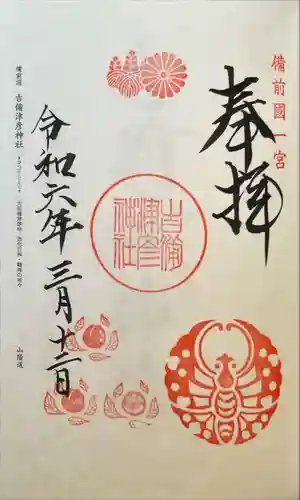 備前國一宮
奉拝
吉備津彦神社
令和六年三月十二日
備前國 吉備津彦神社
山陽道